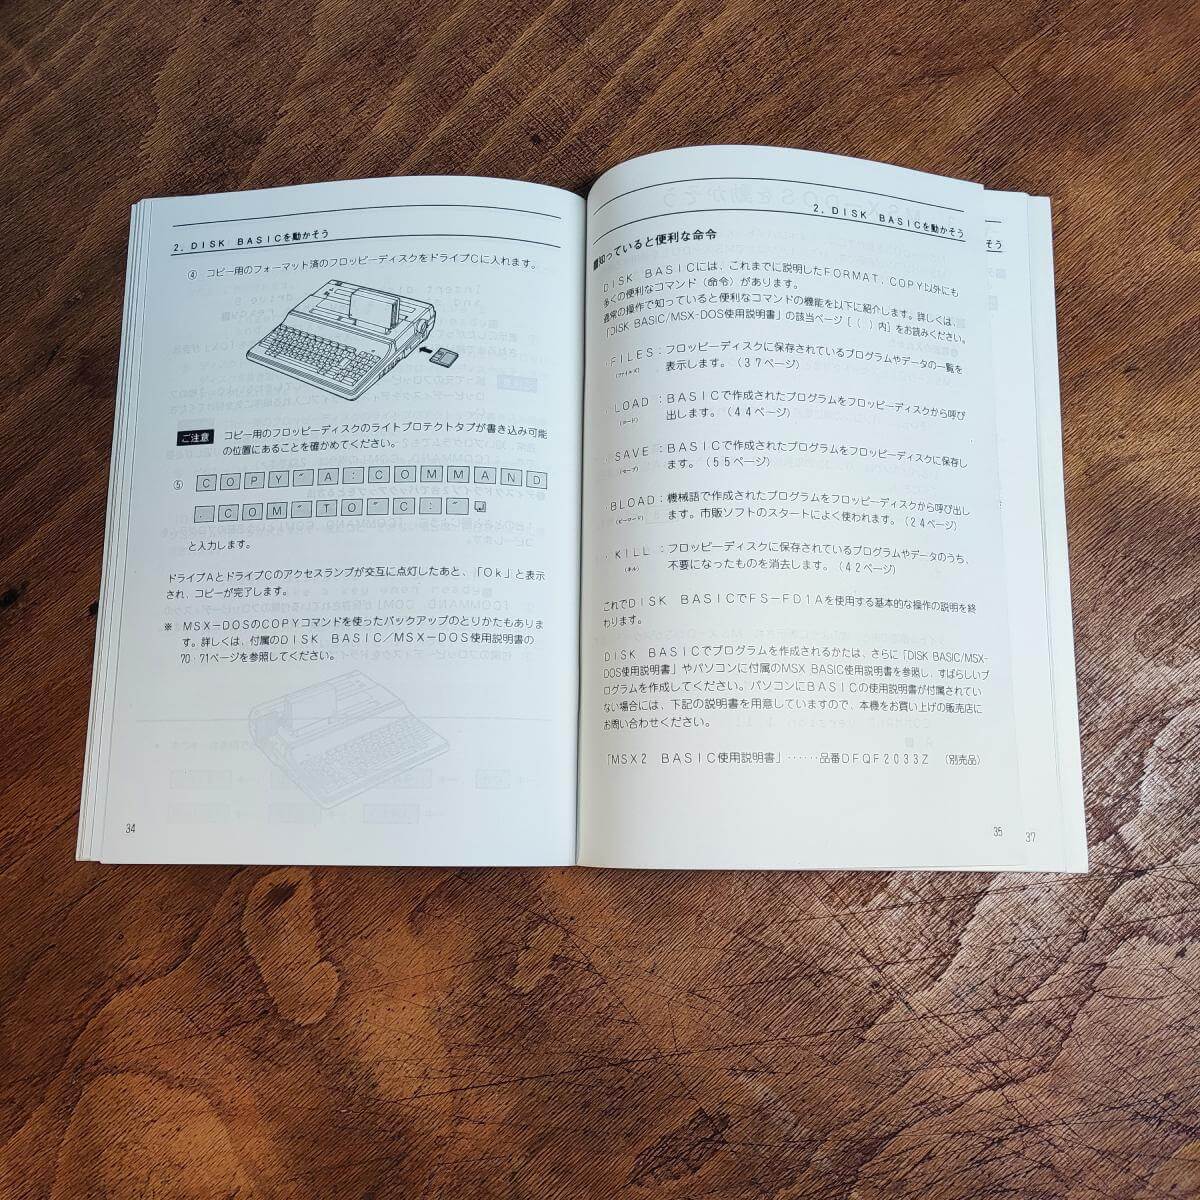 2. DISK BASICを動かそう
④ コピー用のフォーマット済のフロッピーディスクをドライブCに入れます。
ご注意 コピー用のフロッピーディスクのライトプロテクトタブが書き込み可能
の位置にあることを確かめてください。
⑤ COPY"A:COMMAND
.COM"TO"C:"↵
と入力します。
ドライブAとドライブCのアクセスランプが交互に点灯したあと、「Ok」と表示
され、コピーが完了します。
※ MSX-DOSのCOPYコマンドを使ったバックアップのとりかたもありま
す。詳しくは、付属のDISK BASIC/MSX-DOS使用説明書の
70・71ページを参照してください。
34
2. DISK BASICを動かそう
■知っていると便利な命令
DISK BASICには、これまでに説明したFORMAT、COPY以外にも
多くの便利なコマンド(命令)があります。
通常の操作で知っていると便利なコマンドの機能を以下に紹介します。詳しくは、
「DISK BASIC/MSX-DOS使用説明書」の該当ページ[( )内]をお読みください。
・FILES:フロッピーディスクに保存されているプログラムやデータの一覧を
(ファイルズ) 表示します。(37ページ)
・LOAD:BASICで作成されたプログラムをフロッピーディスクから呼び
(ロード) 出します。(44ページ)
・SAVE:BASICで作成されたプログラムをフロッピーディスクに保存し
(セーブ) ます。(55ページ)
・BLOAD:機械語で作成されたプログラムをフロッピーディスクから呼び出し
(ビーロード) ます。市販ソフトのスタートによく使われます。(24ページ)
・KILL:フロッピーディスクに保存されているプログラムやデータのうち、
(キル) 不要になったものを消去します。(42ページ)
これでDISK BASICでFS-FD1Aを使用する基本的な操作の説明を終
わります。
DISK BASICでプログラムを作成されるかたは、さらに「DISK BASIC/MSX-
DOS使用説明書」やパソコンに付属のMSX BASIC使用説明書を参照し、すばらしいプ
ログラムを作成してください。パソコンにBASICの使用説明書が付属されてい
ない場合には、下記の説明書を用意していますので、本機をお買い上げの販売店に
お問い合わせください。
「MSX2 BASIC使用説明書」……品番DFQF2033Z (別売品)
35
そう
37